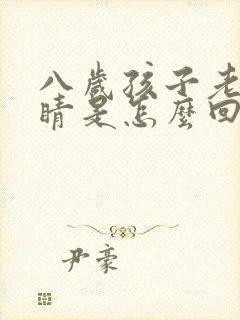 八歲孩子老
睛是怎麼回
尹豪